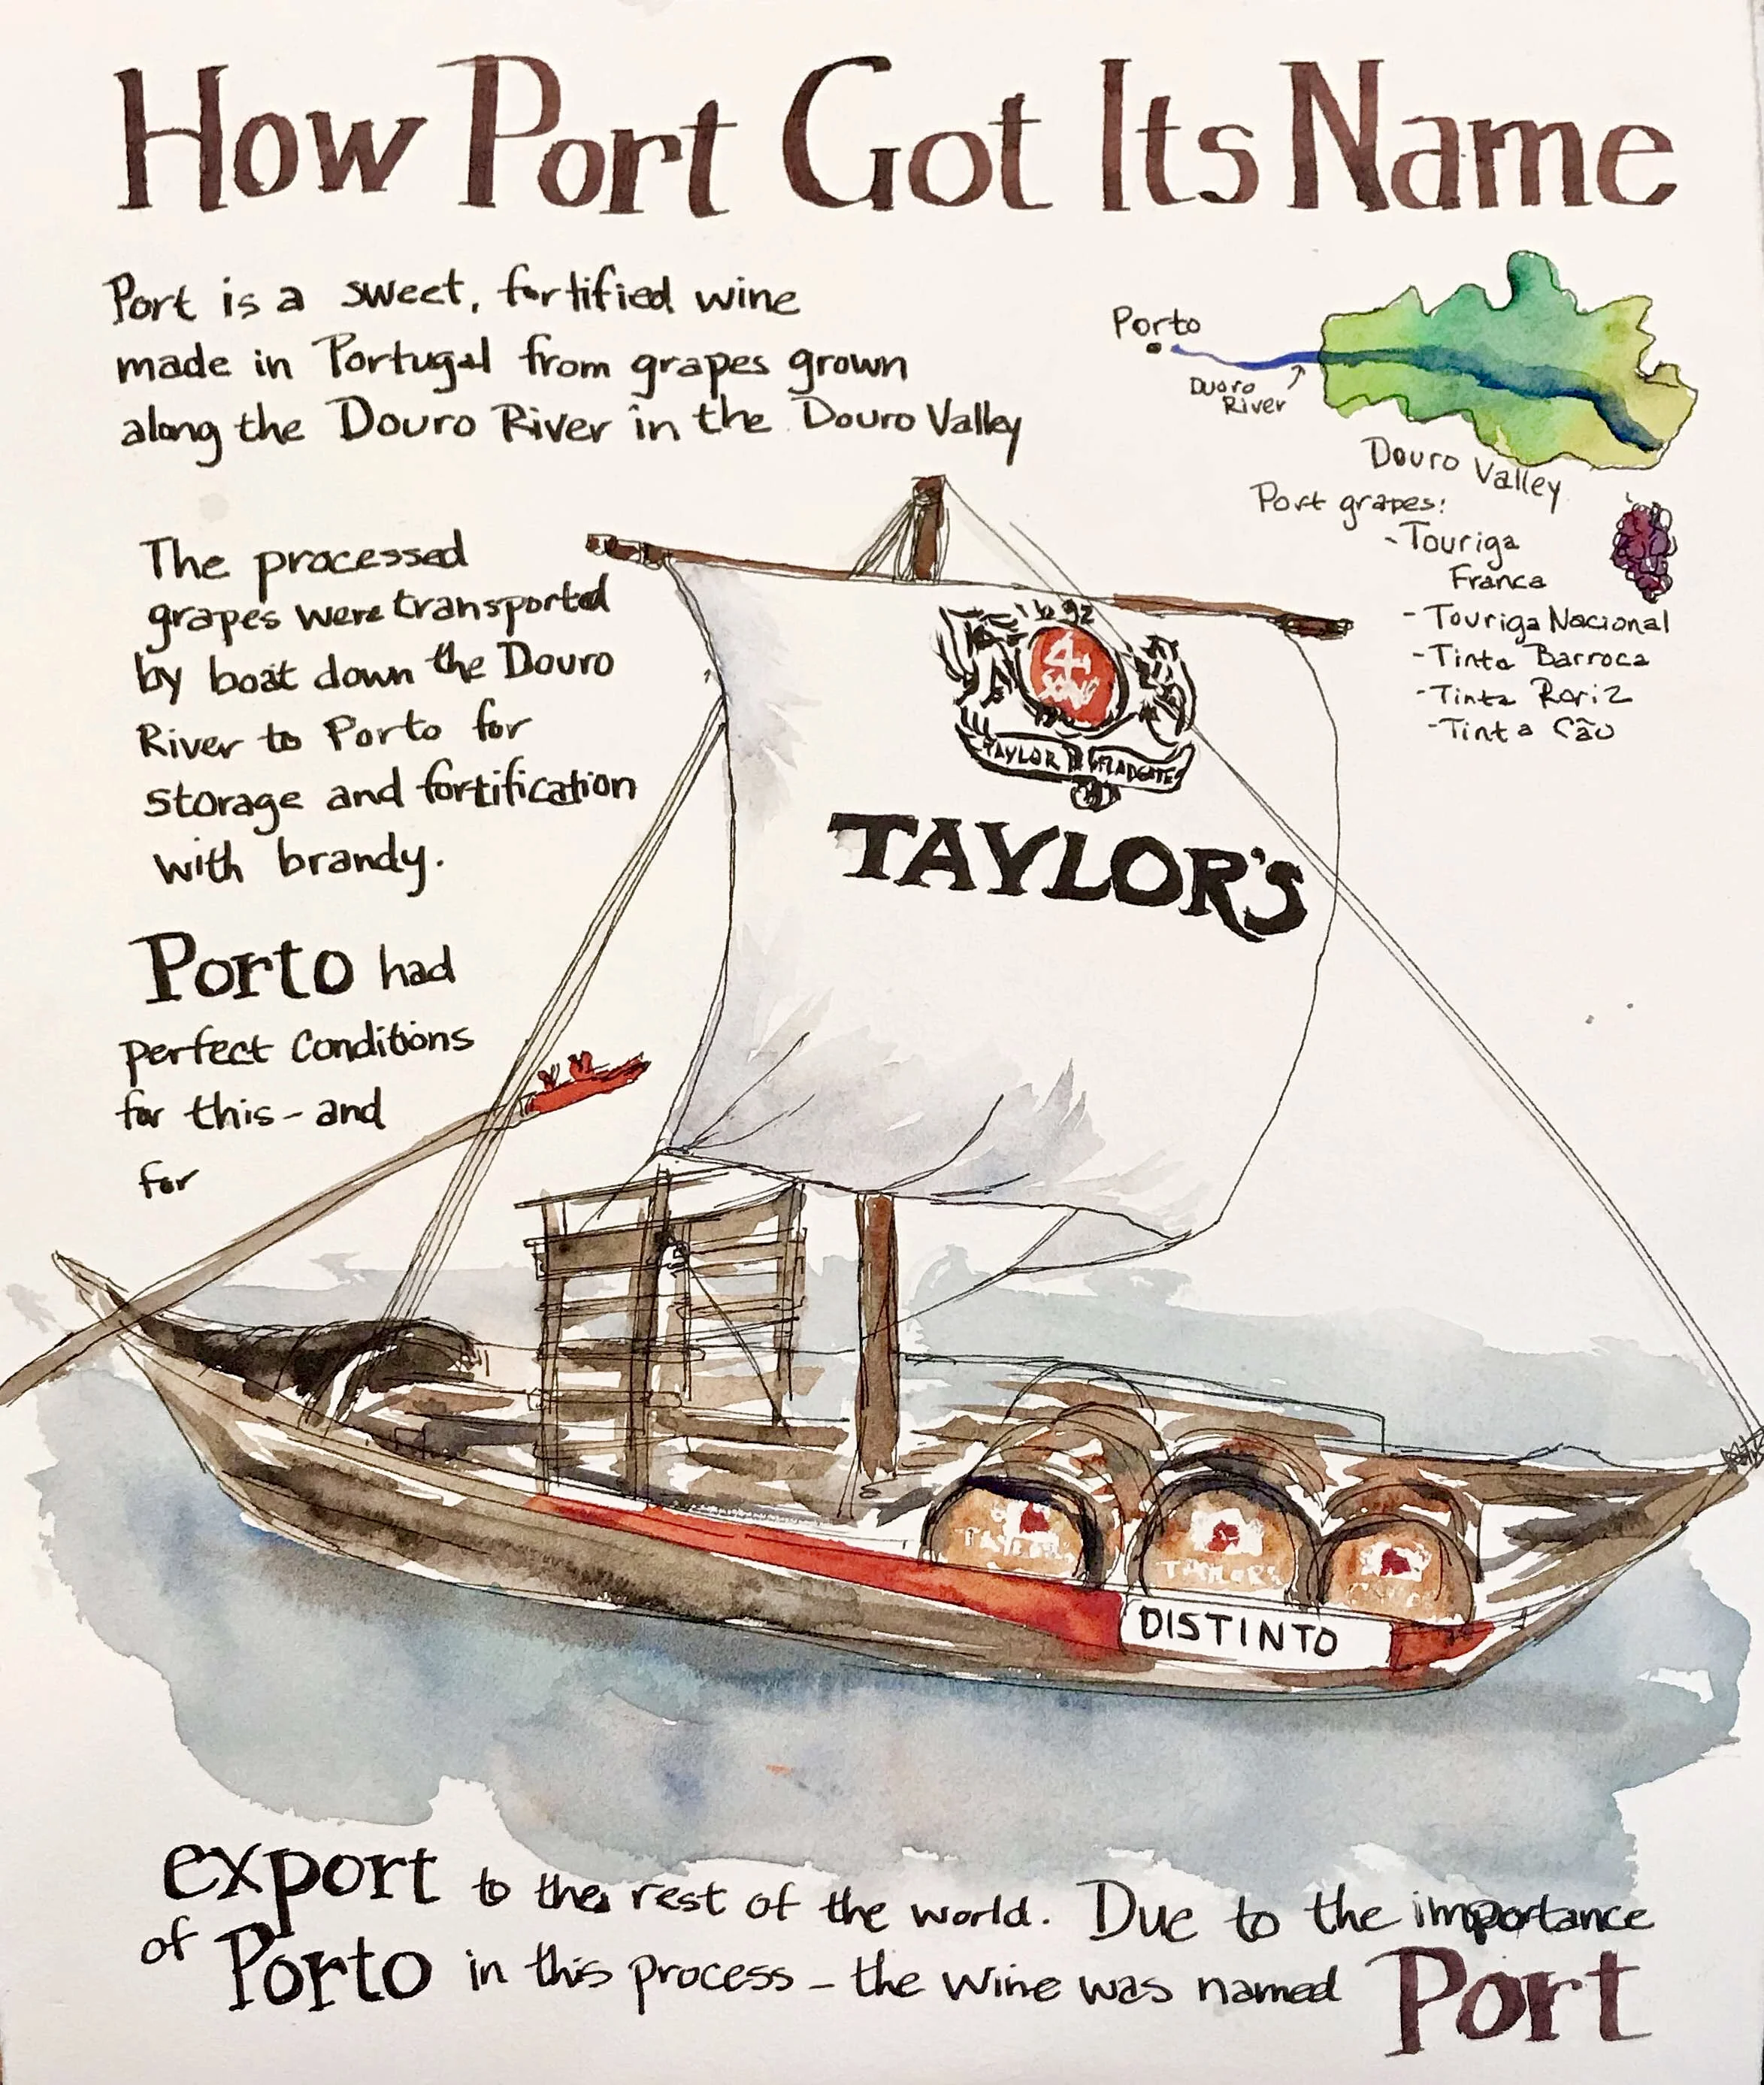 How Port Got Its Name
Port is a sweet, fortified wine
made in Portugal from grapes grown
along the Douro River in the Douro Valley
Porto
Duoro
River
Douro Valley
Port grapes:
- Touriga
Franca
- Touriga Nacional
- Tinta Barroca
- Tinta Roriz
- Tinta Cão
The processed
grapes were transported
by boat down the Douro
River to Porto for
storage and fortification
with brandy.
Porto had
perfect conditions
for this - and
for
1692
4
XX
TAYLOR FLADGATE
TAYLOR'S
TAYLORS
TAYLORS
DISTINTO
export to the rest of the world. Due to the importance
of Porto in this process - the wine was named Port